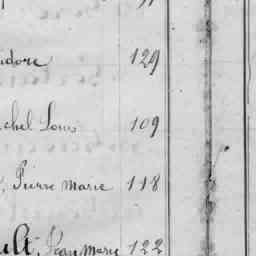 idore 129
chel Louis 109
, Pierre Marie 118
ult, Jean Marie 122